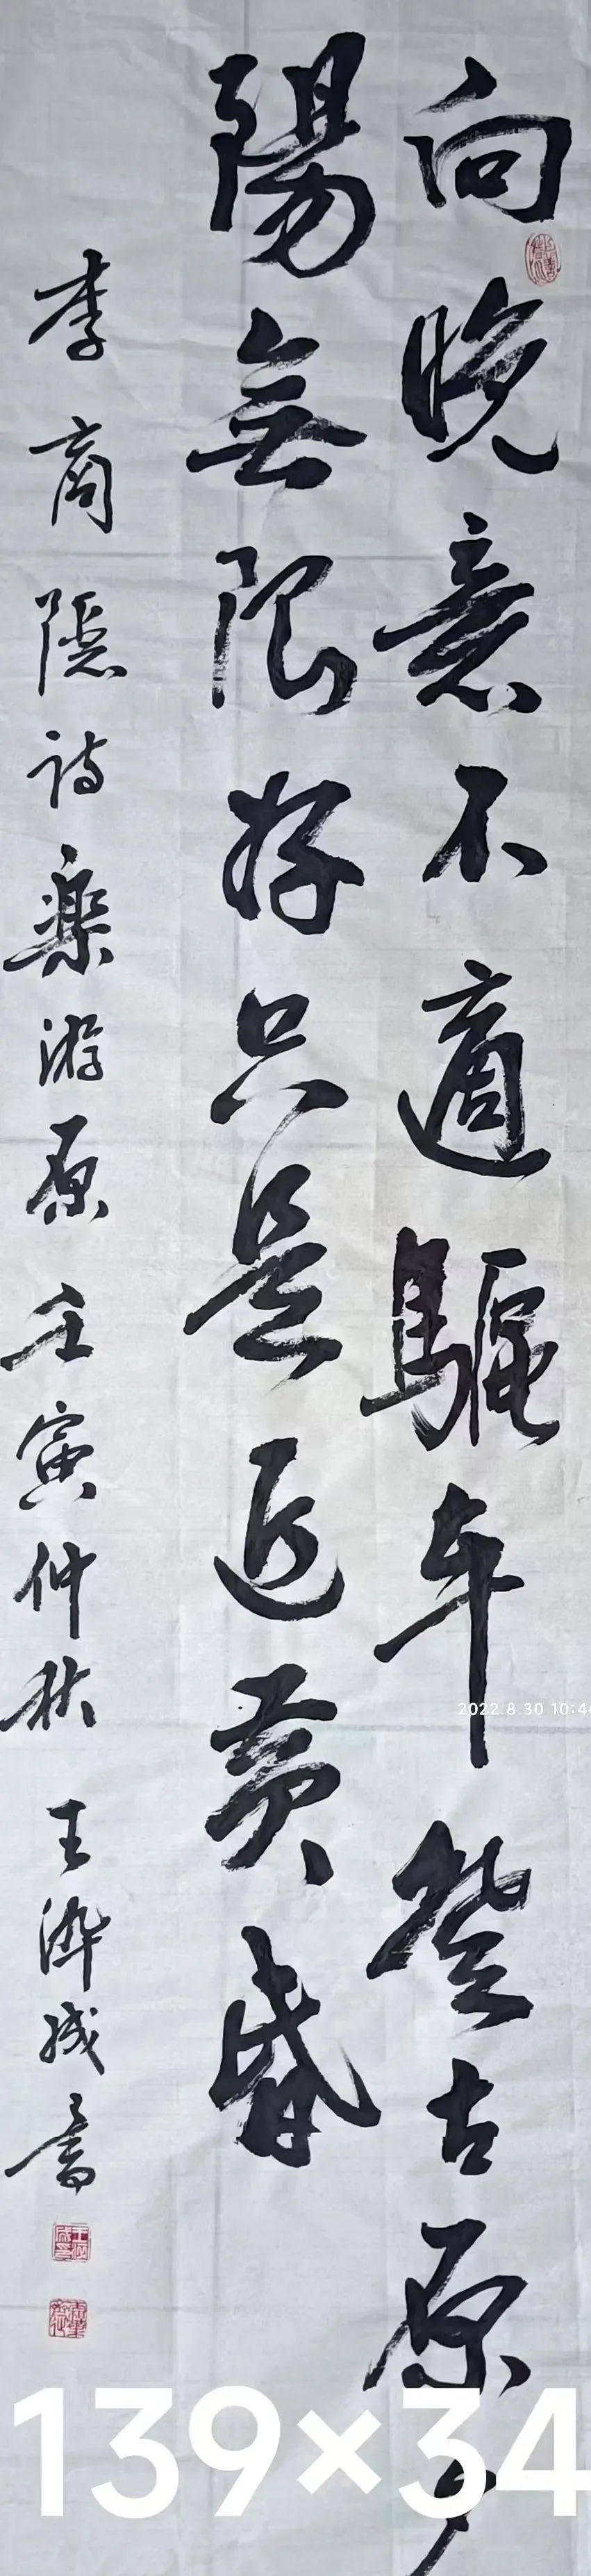 向晚意不適驅车登古原夕
陽無限好只是近黄昏
李商隐诗樂游原 壬寅仲秋 王 書
2022.8.30 10:46
139×34